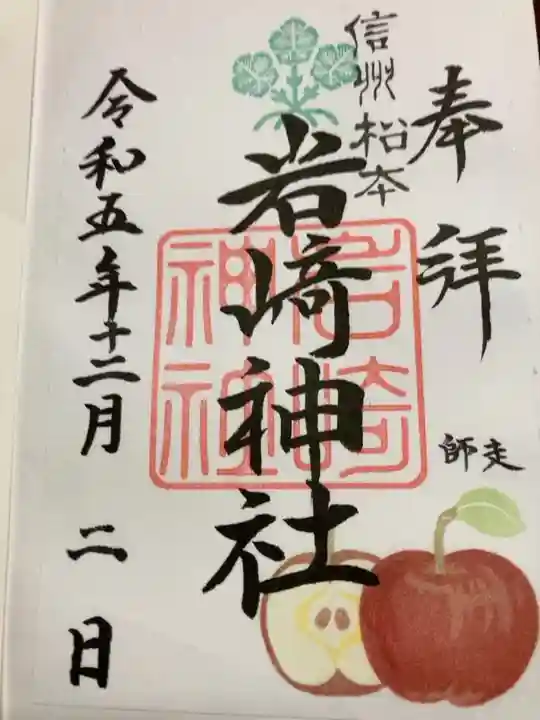 奉拝
師走
信州松本
岩﨑神社
岩﨑
神社
令和五年十二月二日